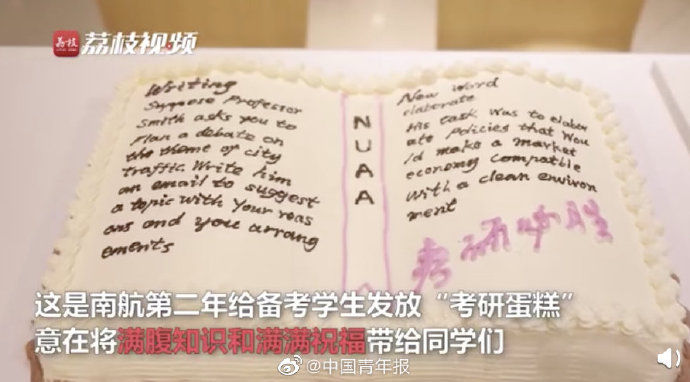 荔枝
荔枝视频
Writing
Suppose Professor
Smith asks you to
Plan a debate on
the theme of city
traffic. Write him
an email to suggest
a topic with your reas
ons and you arrang
ements
N
U
A
A
New Word
elaborate
His task was to elabor
ate policies that wou
ld make a market
economy compatble
with a clean environ
ment
考研必胜
这是南航第二年给备考学生发放“考研蛋糕”
意在将满腹知识和满满祝福带给同学们
@中国青年报